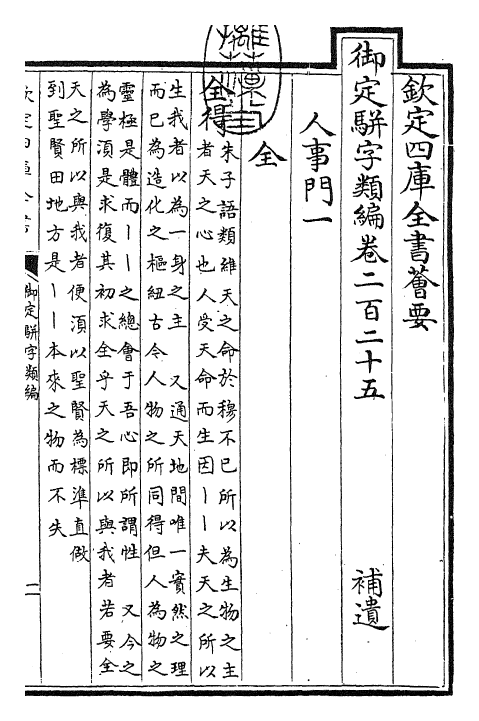 欽定四庫全書薈要
御定駢字類編卷二百二十五 補遺
人事門一
全
全得
朱子語類維天之命於穆不已所以為生物之主
者天之心也人受天命而生因丨丨夫天之所以
生我者以為一身之主 又通天地間唯一實然之理
而已為造化之樞紐古今人物之所同得但人為物之
靈極是體而丨丨之總會于吾心即所謂性 又今之
為學須是求復其初求全乎天之所以與我者若要全
天之所以與我者便須以聖賢為標準直做
到聖賢田地方是丨丨本來之物而不失
御定駢字類編
一